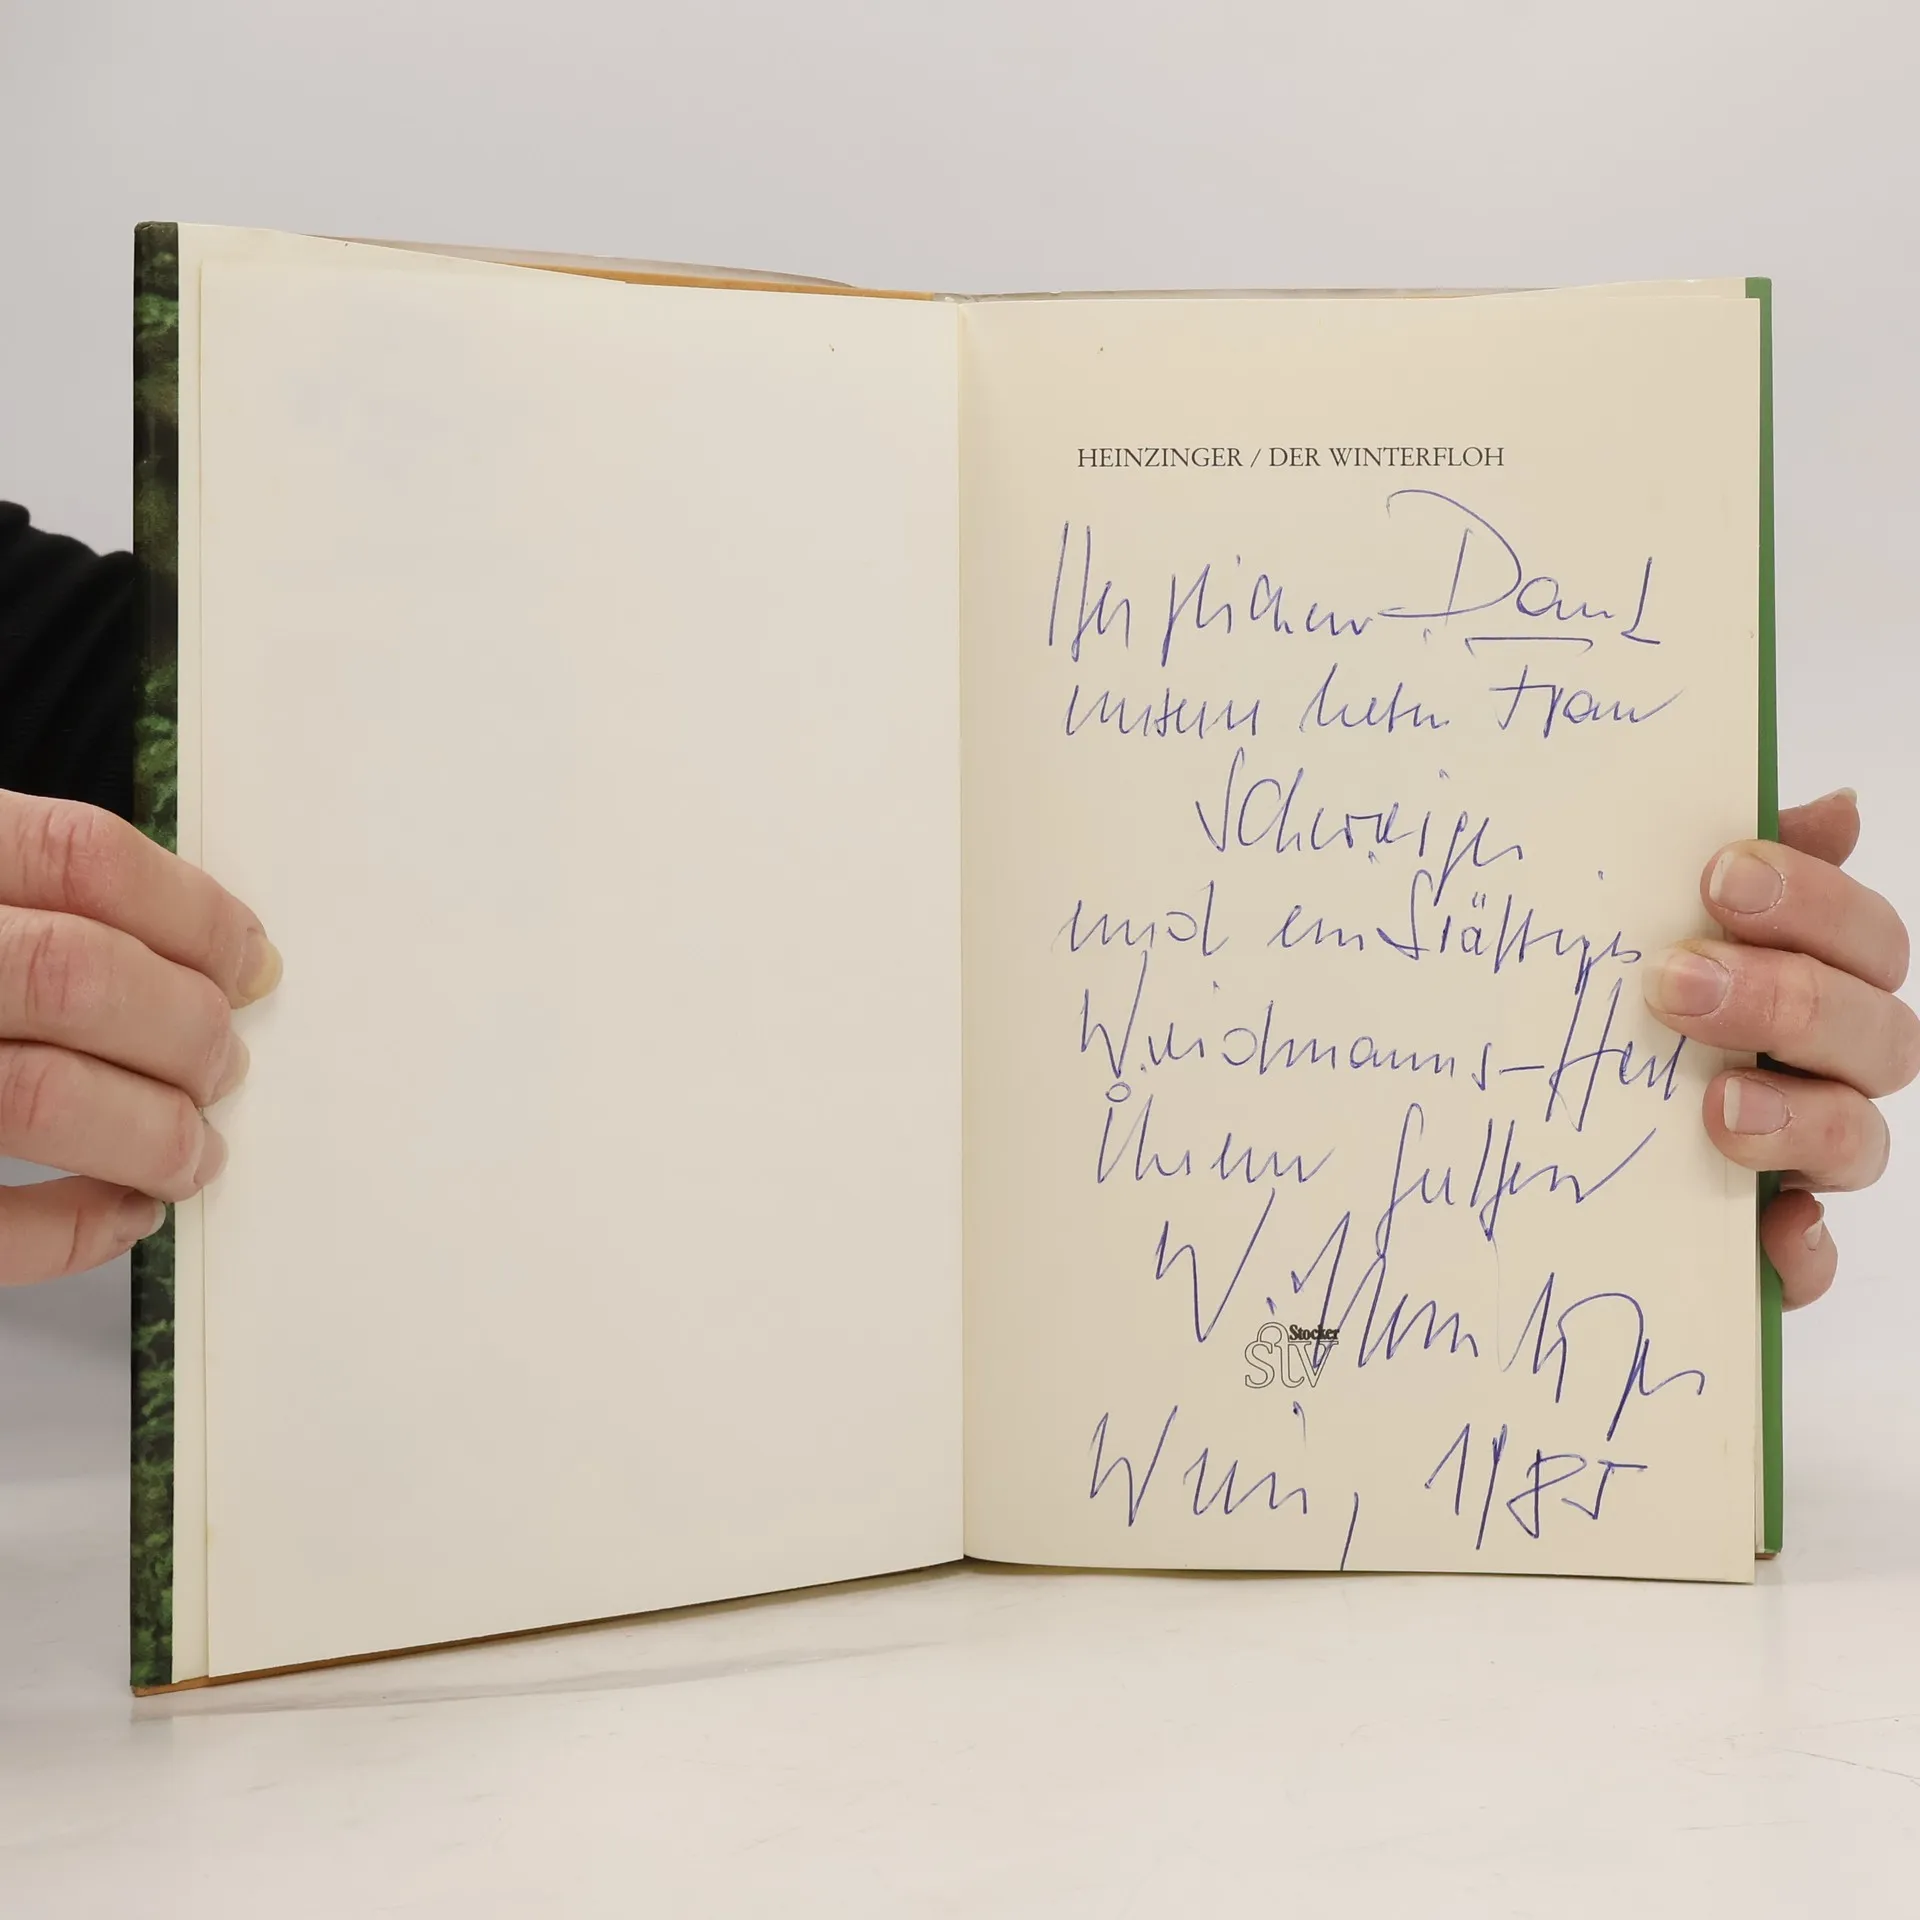 HEINZINGER / DER WINTERFLOH
Herzlichen Dank
unserer lieben Frau
Schwaiger
und ein kräftiges
Weidmanns-Heil
Ihrem Gatten
W.
Stocker
stv
Wien, 1985